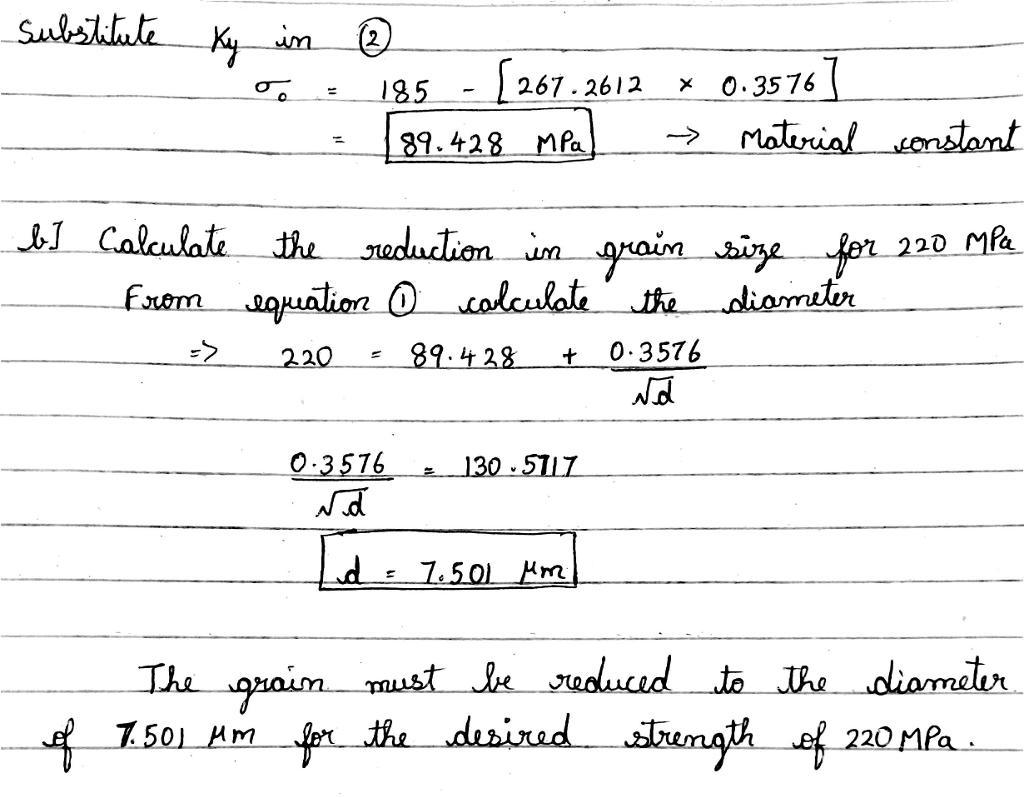 Substitute Ky in ②
σ₀ = 185 - [267.2612 × 0.3576]
= 89.428 MPa → Material constant
b] Calculate the reduction in grain size for 220 MPa
From equation ① calculate the diameter
=> 220 = 89.428 + 0.3576
√d
0.3576 = 130.5717
√d
d = 7.501 μm
The grain must be reduced to the diameter
of 7.501 μm for the desired strength of 220 MPa.